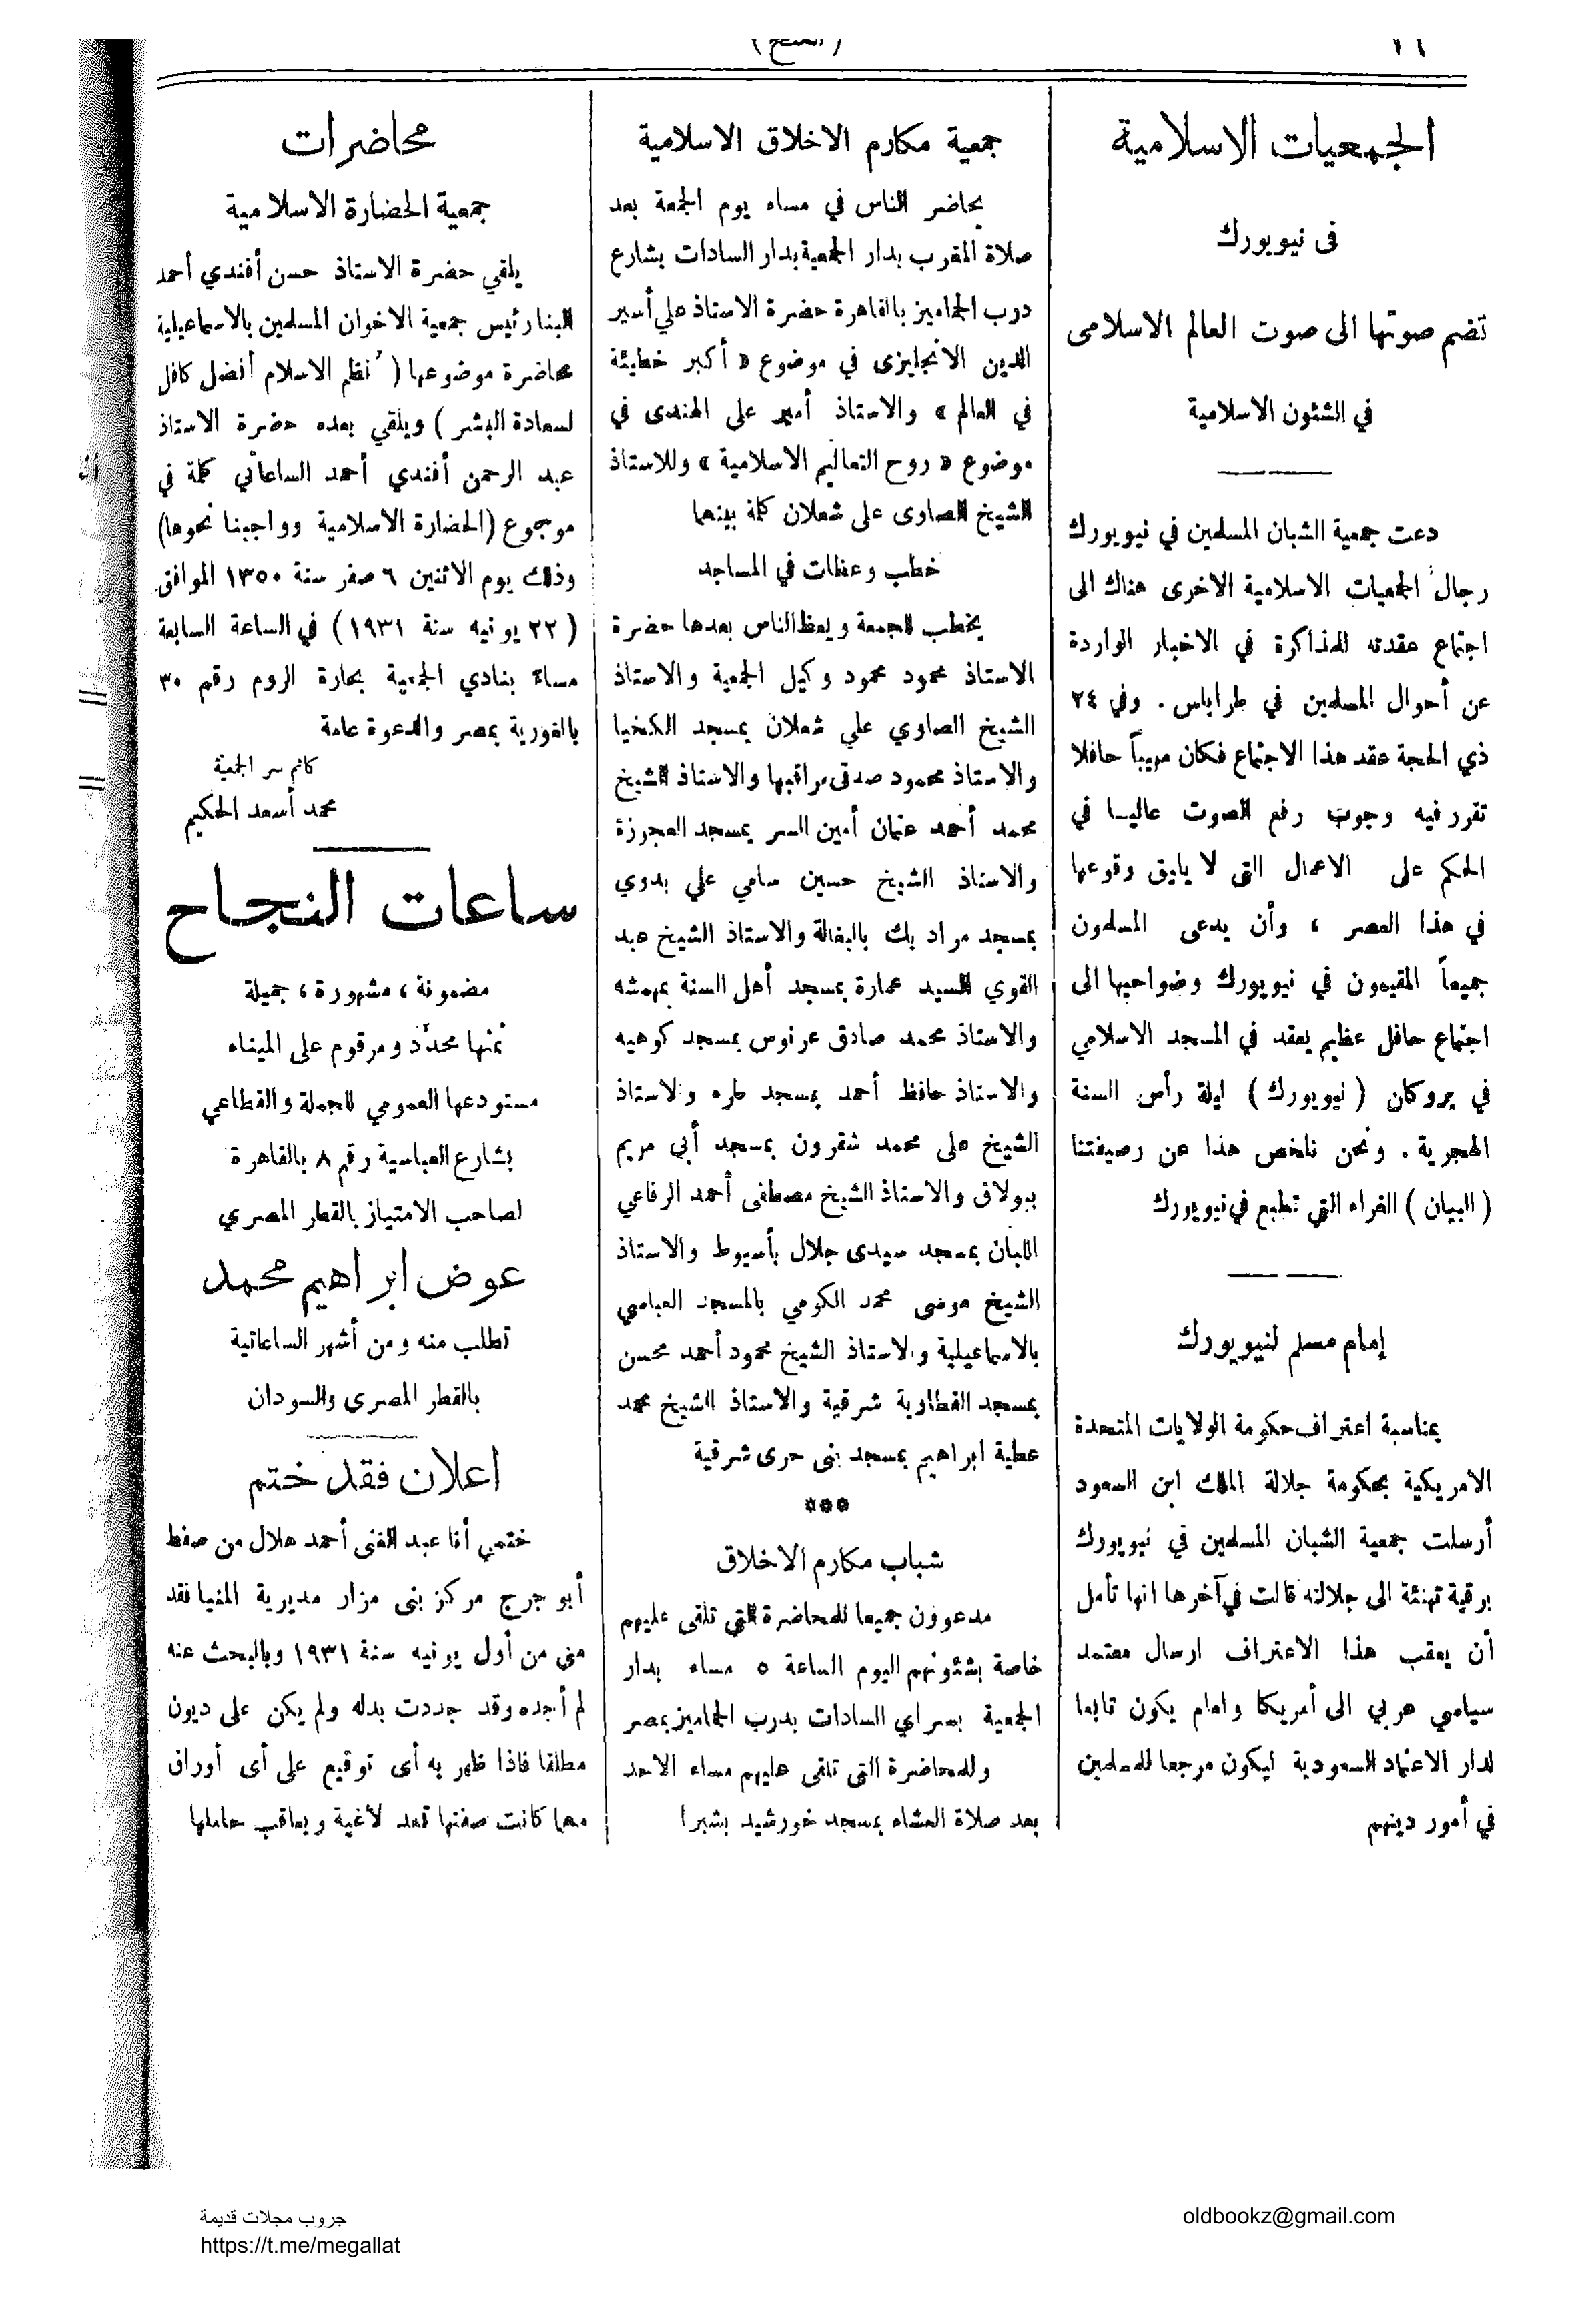 ١٦
(الفتح)
الجمعيات الاسلامية
فى نيويورك
تضم صوتها الى صوت العالم الاسلامى
في الشئون الاسلامية
دعت جمعية الشبان المسلمين في نيويورك
رجال الجمعيات الاسلامية الاخرى هناك الى
اجتماع عقدته للمذاكرة في الاخبار الواردة
عن أحوال المسلمين في طرابلس . وفي ٢٤
ذي الحجة عقد هذا الاجتماع فكان مهيباً حافلا
تقرر فيه وجوب رفع الصوت عاليا في
الحكم على الاعمال التى لا يليق وقوعها
في هذا العصر ، وأن يدعى المسلمون
جميعاً المقيمون في نيويورك وضواحيها الى
اجتماع حافل عظيم يعقد في المسجد الاسلامي
في بروكلن ( نيويورك ) ليلة رأس السنة
الهجرية . ونحن نلخص هذا عن رصيفتنا
( البيان ) الغراء التي تطبع في نيويورك
إمام مسلم لنيويورك
بمناسبة اعتراف حكومة الولايات المتحدة
الامريكية بحكومة جلالة الملك ابن السعود
أرسلت جمعية الشبان المسلمين في نيويورك
برقية تهنئة الى جلالته قالت في آخرها انها تأمل
أن يعقب هذا الاعتراف ارسال معتمد
سياسي عربي الى أمريكا وامام يكون تابعا
لدار الاعتماد السعودية ليكون مرجعا للمسلمين
في أمور دينهم
جمعية مكارم الاخلاق الاسلامية
يحاضر الناس في مساء يوم الجمعة بعد
صلاة المغرب بدار الجمعية بدار السادات بشارع
درب الجماميز بالقاهرة حضرة الاستاذ علي أسير
الدين الانجليزى في موضوع « أكبر خطيئة
في العالم » والاستاذ أمير على الهندى في
موضوع « روح التعاليم الاسلامية » وللاستاذ
الشيخ الصاوى على شعلان كلمة بينهما
خطب وعظات في المساجد
يخطب للجمعة ويعظ الناس بعدها حضرة
الاستاذ محمود محمود وكيل الجمعية والاستاذ
الشيخ الصاوي علي شعلان بمسجد الكخيا
والاستاذ محمود صدقى مراقبها والاستاذ الشيخ
محمد أحمد عثمان أمين السر بمسجد العجوزة
والاستاذ الشيخ حسين سامي علي بدوي
بمسجد مراد بك بالبغالة والاستاذ الشيخ عبد
القوي السيد عمارة بمسجد أهل السنة بمهمشه
والاستاذ محمد صادق عرنوس بمسجد كوهيه
والاستاذ حافظ أحمد بمسجد طره والاستاذ
الشيخ على محمد شقرون بمسجد أبي مريم
ببولاق والاستاذ الشيخ مصطفى أحمد الرفاعي
اللبان بمسجد سيدى جلال بأسيوط والاستاذ
الشيخ موسى محمد الكومي بالمسجد العباسي
بالاسماعيلية والاستاذ الشيخ محمود أحمد محسن
بمسجد القطاوية شرقية والاستاذ الشيخ محمد
عطية ابراهيم بمسجد بنى حرى شرقية
***
شباب مكارم الاخلاق
مدعوون جميعا للمحاضرة التي تلقى عليهم
خاصة بشئونهم اليوم الساعة ٥ مساء بدار
الجمعية بسراي السادات بدرب الجماميز بمصر
وللمحاضرة التى تلقى عليهم مساء الاحد
بعد صلاة العشاء بمسجد خورشيد بشبرا
محاضرات
جمعية الحضارة الاسلامية
يلقي حضرة الاستاذ حسن أفندي أحمد
البنا رئيس جمعية الاخوان المسلمين بالاسماعيلية
محاضرة موضوعها ( نُظم الاسلام أفضل كافل
لسعادة البشر ) ويلقي بعده حضرة الاستاذ
عبد الرحمن أفندي أحمد الساعاتي كلمة في
موجوع (الحضارة الاسلامية وواجبنا نحوها)
وذلك يوم الاثنين ٦ صفر سنة ١٣٥٠ الموافق
( ٢٢ يونيه سنة ١٩٣١ ) في الساعة السابعة
مساءً بنادي الجمعية بحارة الروم رقم ٣٠
بالغورية بمصر والدعوة عامة
كاتم سر الجمعية
محمد أسعد الحكيم
ساعات النجاح
مضمونة ، مشهورة ، جميلة
ثمنها محدّد ومرقوم على الميناء
مستودعها العمومي للجملة والقطاعي
بشارع العباسية رقم ٨ بالقاهرة
لصاحب الامتياز بالقطر المصري
عوض ابراهيم محمد
تطلب منه ومن أشهر الساعاتية
بالقطر المصرى والسودان
اعلان فقد ختم
ختمي أنا عبد الغنى أحمد هلال من صفط
أبو جرج مركز بنى مزار مديرية المنيا فقد
منى من أول يونيه سنة ١٩٣١ وبالبحث عنه
لم أجده وقد جددت بدله ولم يكن على ديون
مطلقا فاذا ظهر به أى توقيع على أى أوراق
مهما كانت صفتها تعد لاغية ويعاقب حاملها
جروب مجلات قديمة
https://t.me/megallat
oldbookz@gmail.com